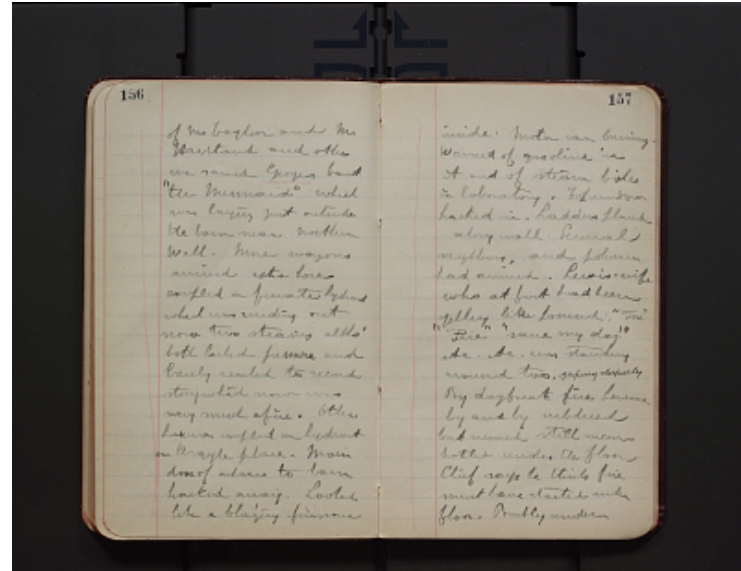 156
of Mr Gaylor and Mr
and others
we saved Georges boat
"the Mermaid" which
was laying just outside
the barn near northern
Wall. More wagons
arrived extra hose
coupled on private hydrant
which was sending out
now two streams altho'
both lacked pressure and
barely reached the second
story which now was
very much afire. Other
hose was coupled on hydrant
on Argyle place. Main
door of entrance to barn
hacked away. Looked
like a blazing furnace
157
inside. Motor car burning.
Warned of gasoline in
at end of steam boiler
in laboratory.
hacked in. Ladders placed
along wall. Several
neighbors, and policemen
had arrived. wife
who at first had been
yelling like "Fire"
"Fire" "save my dog"
&c. &c. was standing
around too, gazing
By daybreak fire became
by and by subdued
but newest still
under the floor
Chief says he thinks fire
must have started under
floor. Probably under